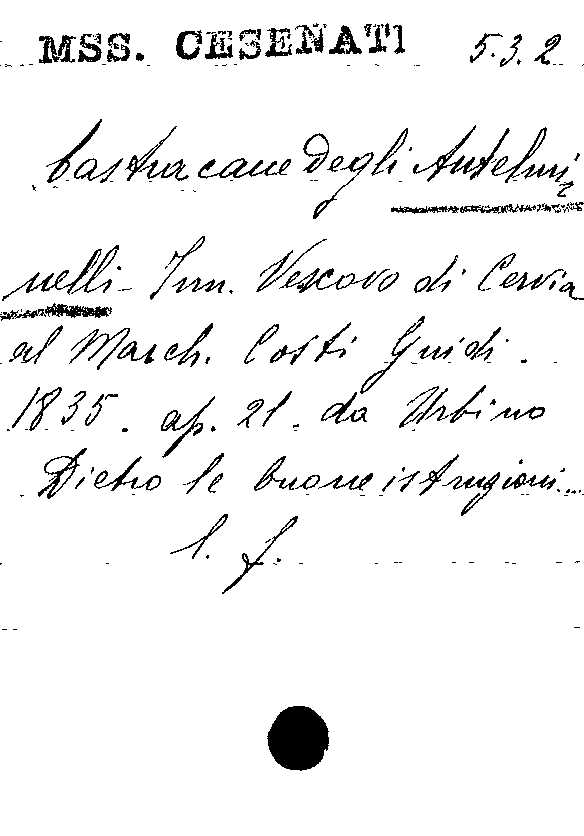 MSS. CESENATI 5.3.2
Castracane degli Antelmi,
nelli - Inn. Vescovo di Cervia
al March. Costi Guidi.
1835. ap. 21. da Urbino
Dietro le buone istruzioni...
l. f.